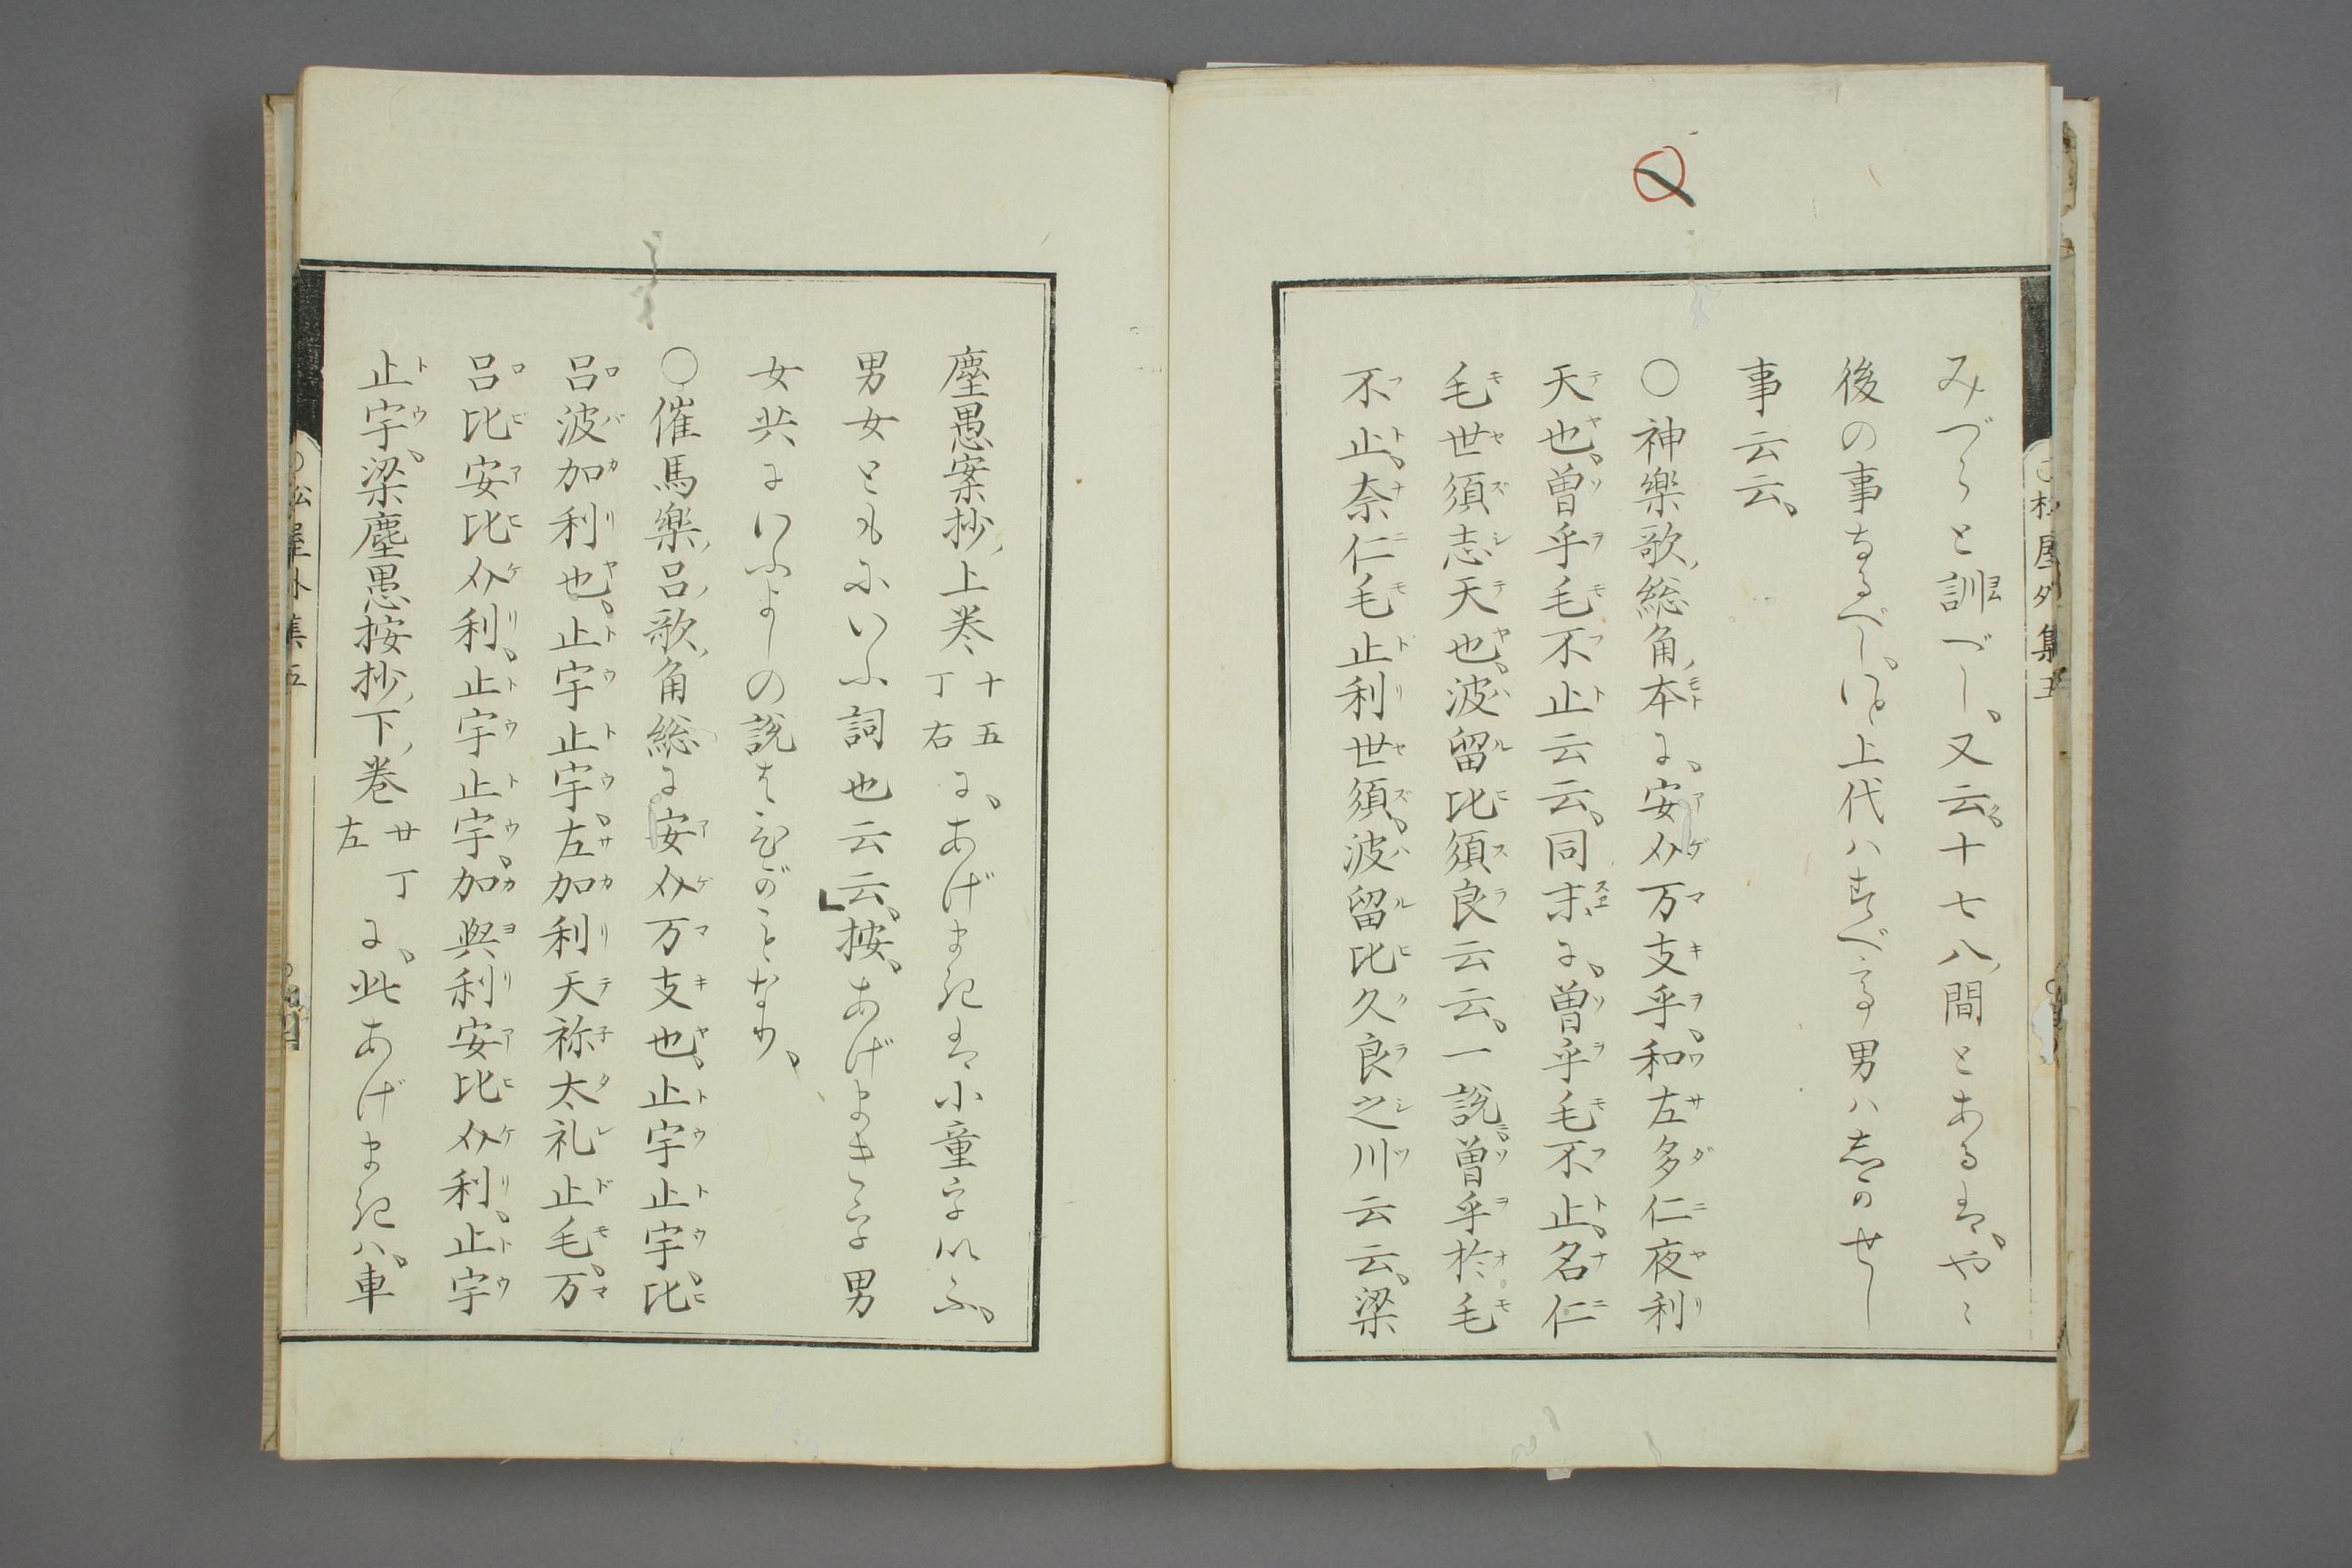 みづらと訓べし。又云。十七八間とあるは。やゝ
後の事なるべし。いと上代ハすべて男ハ志かせし
事云云。
〇神樂歌総角本に。安介万支乎。和左多仁夜利
天也。曽乎毛不止云云。同末に。曽乎毛不止。名仁
毛世須志天也。波留比須良云云。一説曽乎於毛
不止。奈仁毛止利世須。波留比久良之川云云。梁
塵愚案抄上巻十五丁右に。あげまきは小童を以ふ。
男女ともにいふ詞也云云。」按。あげまきを男
女共にいふよしの説はひがことなり。
〇催馬樂呂歌角総に安介万支也。止宇止宇。比
呂波加利也。止宇止宇。左加利天祢太礼止毛。万
呂比安比介利。止宇止宇。加與利安比介利。止宇
止宇。梁塵愚按抄下巻廿丁左に。此あげまきハ。車
松屋外集五